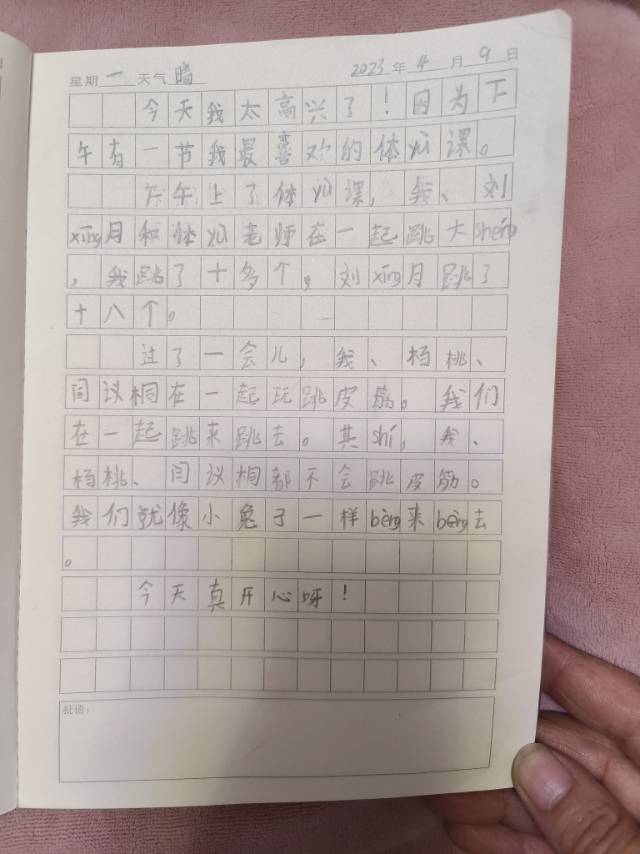 星期 一 天气 晴 2023 年 4 月 9 日
今天我太高兴了！因为下
午有一节我最喜欢的体yù课。
下午上了体yù课，我、刘
xīng月和体yù老师在一起跳大shéng
，我跳了十多个，刘xīng月跳了
十八个。
过了一会儿，我、杨桃、
闫议桐在一起玩跳皮筋。我们
在一起跳来跳去。其shí，我、
杨桃、闫议桐都不会跳皮筋。
我们就像小兔子一样bèng来bèng去
。
今天真开心呀！
批语：